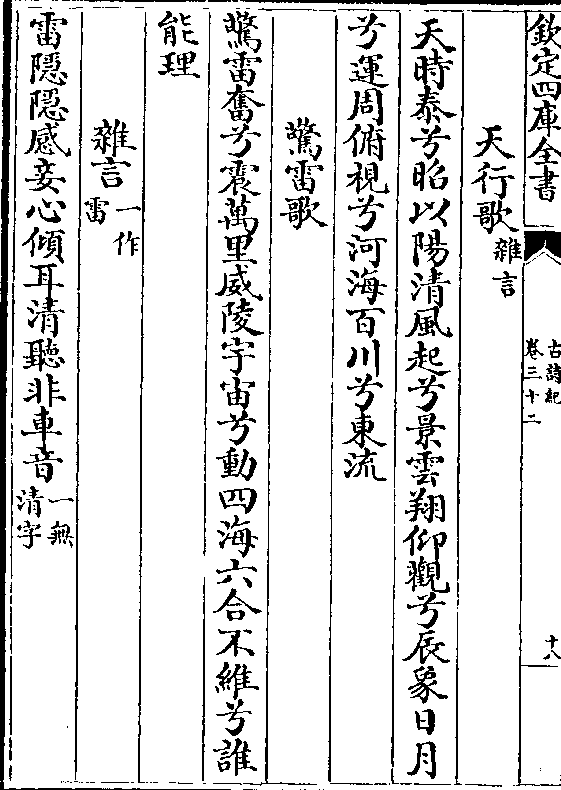 欽定四庫全書
古詩紀
卷三十二
十八
天行歌雜言
天時泰兮昭以陽清風起兮景雲翔仰觀兮辰象日月
兮運周俯視兮河海百川兮東流
驚雷歌
驚雷奮兮震萬里威陵宇宙兮動四海六合不維兮誰
能理
雜言一作雷
雷隱隱感妾心傾耳清聽非車音一無清字